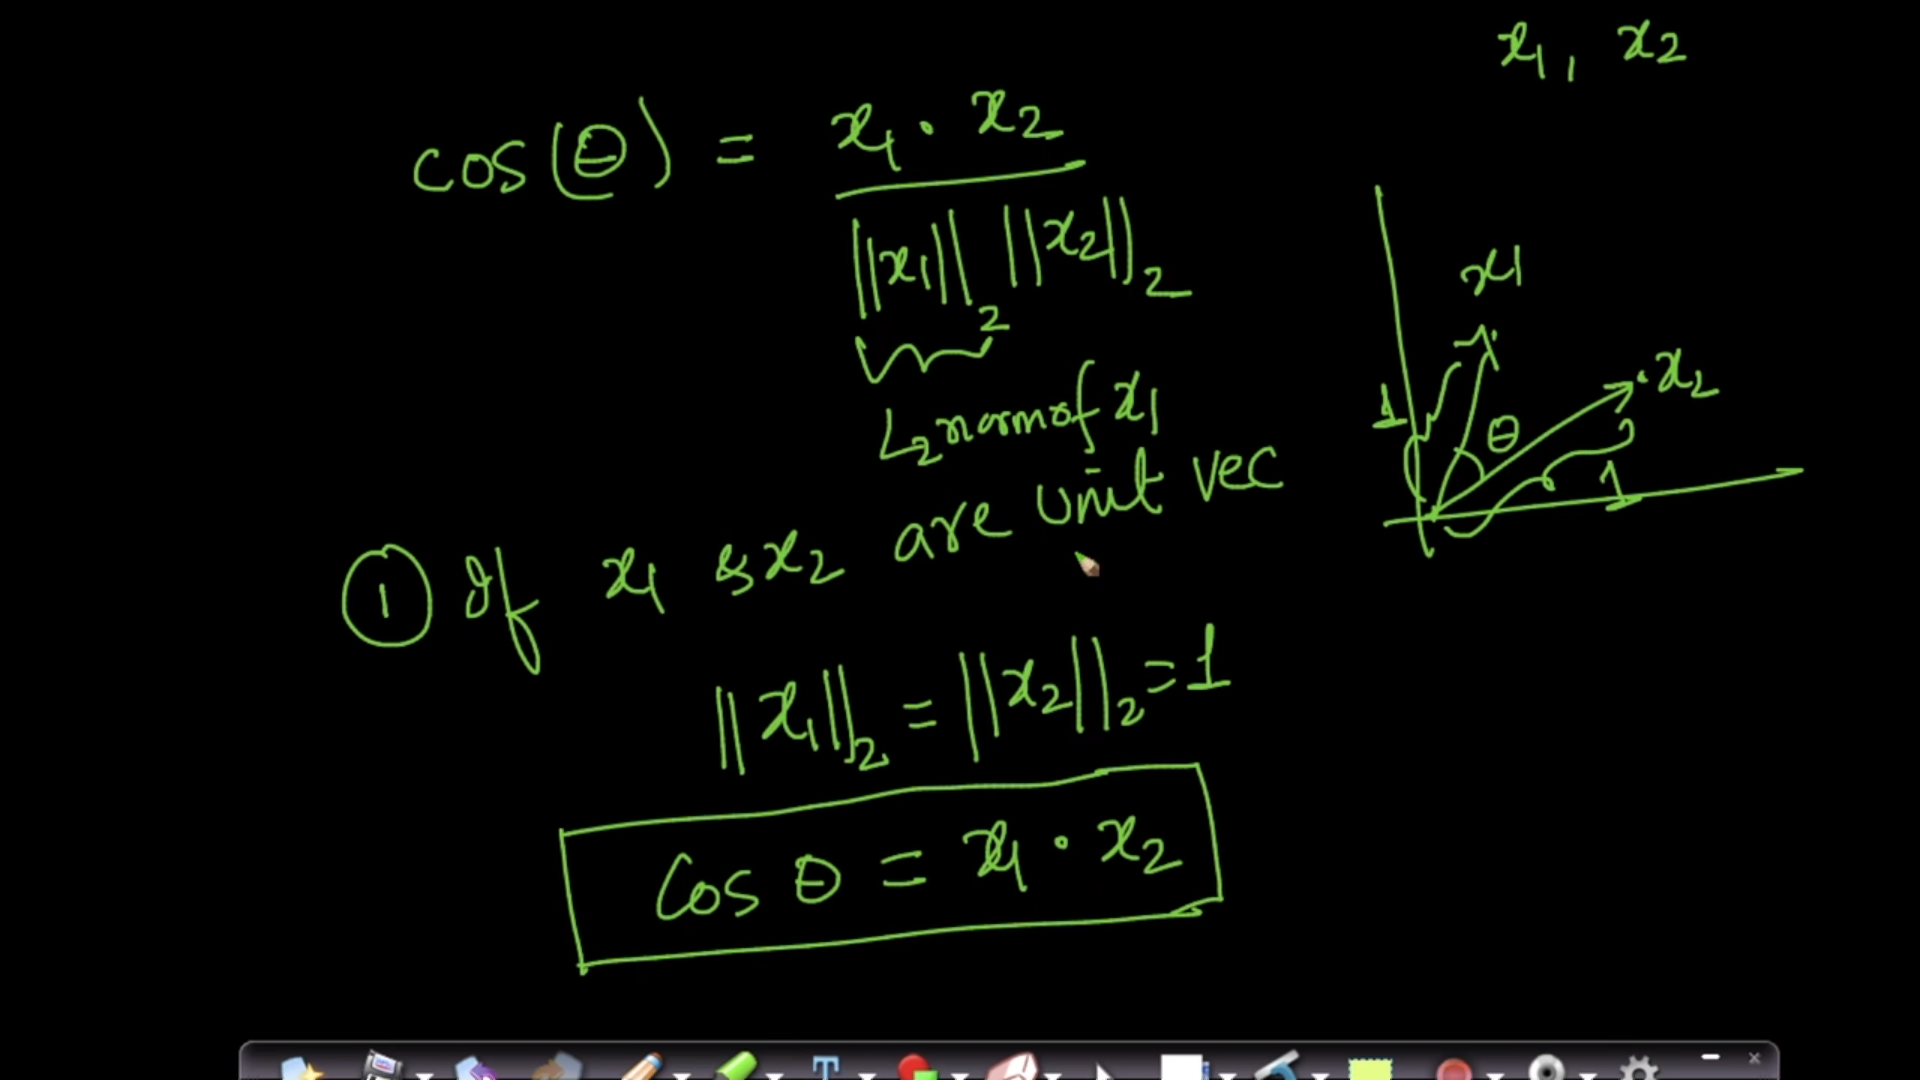 x1, x2
cos(θ) = x1 · x2
||x1||2 ||x2||2
L2 norm of x1
x1
x2
1
θ
1
① If x1 & x2 are unit vec
||x1||2 = ||x2||2 = 1
Cos θ = x1 · x2
T